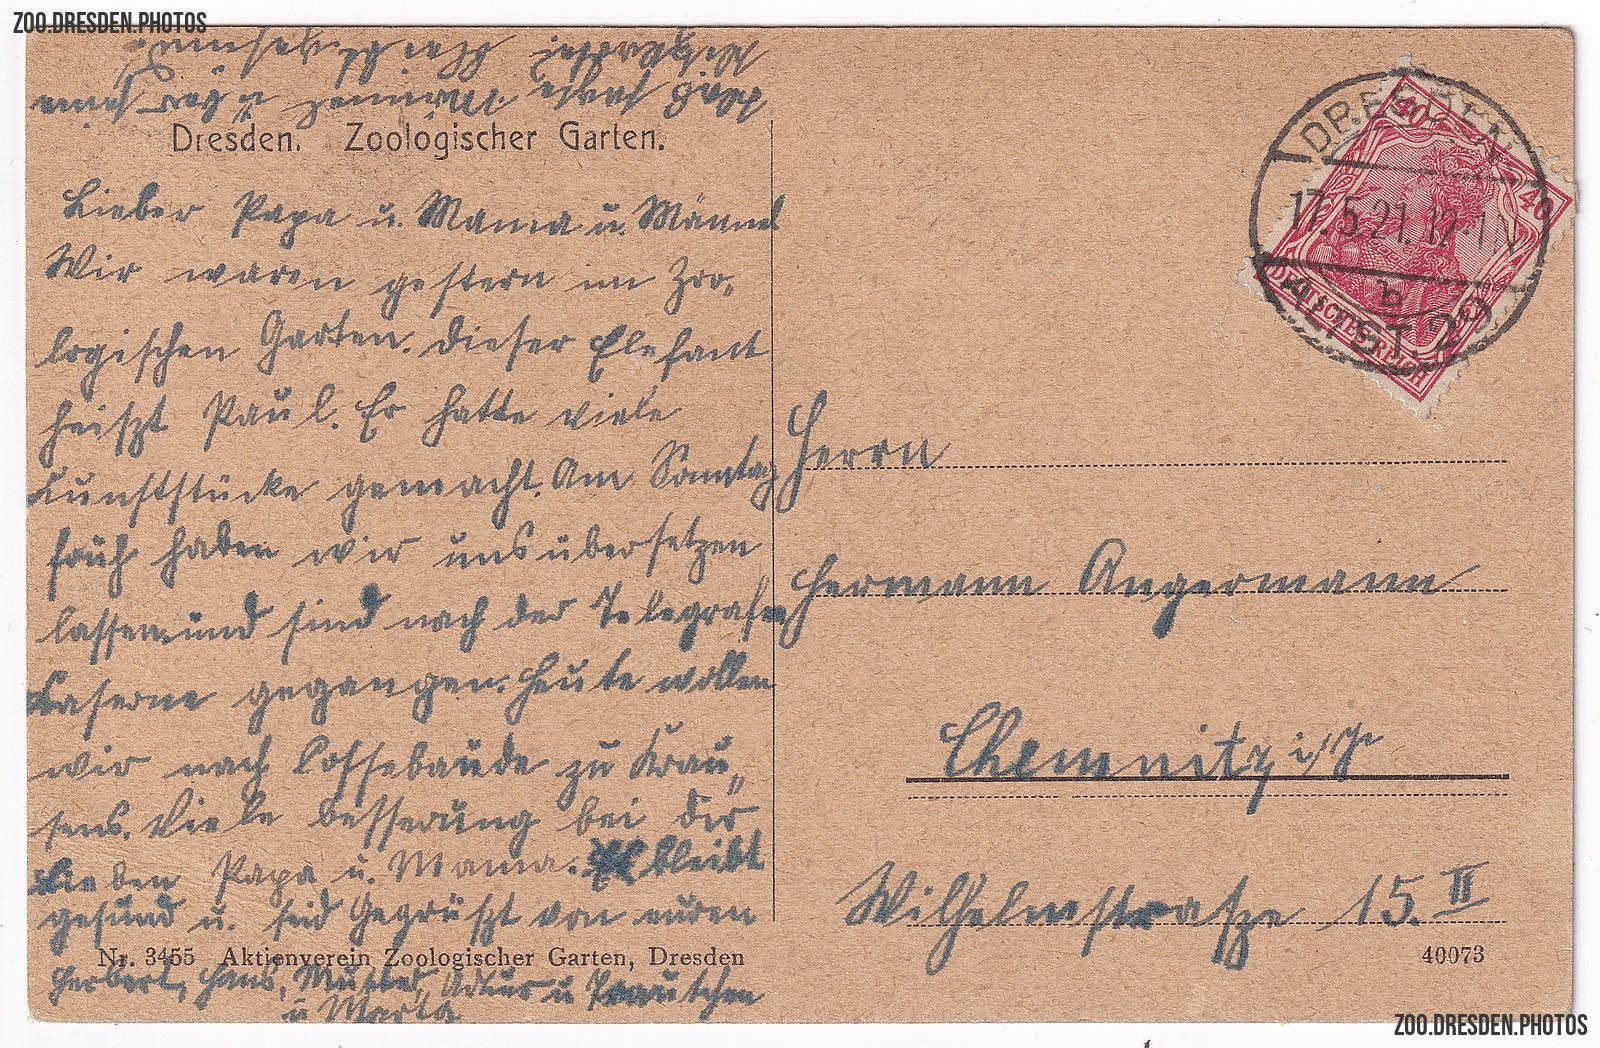 ZOO.DRESDEN.PHOTOS
Dresden. Zoologischer Garten.
Lieber Papa u. Mama u. Männel
Wir waren gestern im Zoo„
logischen Garten. Dieser Elefant
heiszt Paul. Er hatte viele
Kunststücke gemacht. Am Sonntag
früh haben wir uns übersetzen
lassen und sind nach der Telegrafen
Kaserne gegangen. Heute wollen
wir nach Cossebaude zu Krau„
sens. Viele besserung bei Dir
Lieben Papa u. Mama. bleibt
gesund u. seid Gegrüszt von euren
Nr. 3455 Aktienverein Zoologischer Garten, Dresden
Herbert, Hans, Mutter, u
u Marta
DRESDEN
17.5.21. 12-1 N
b
ALTST. 29
40
40
DEUTSCHES REICH
Herrn
Hermann Angermann
Chemnitz i/S
Wilhelmstrasze 15. II
40073
ZOO.DRESDEN.PHOTOS